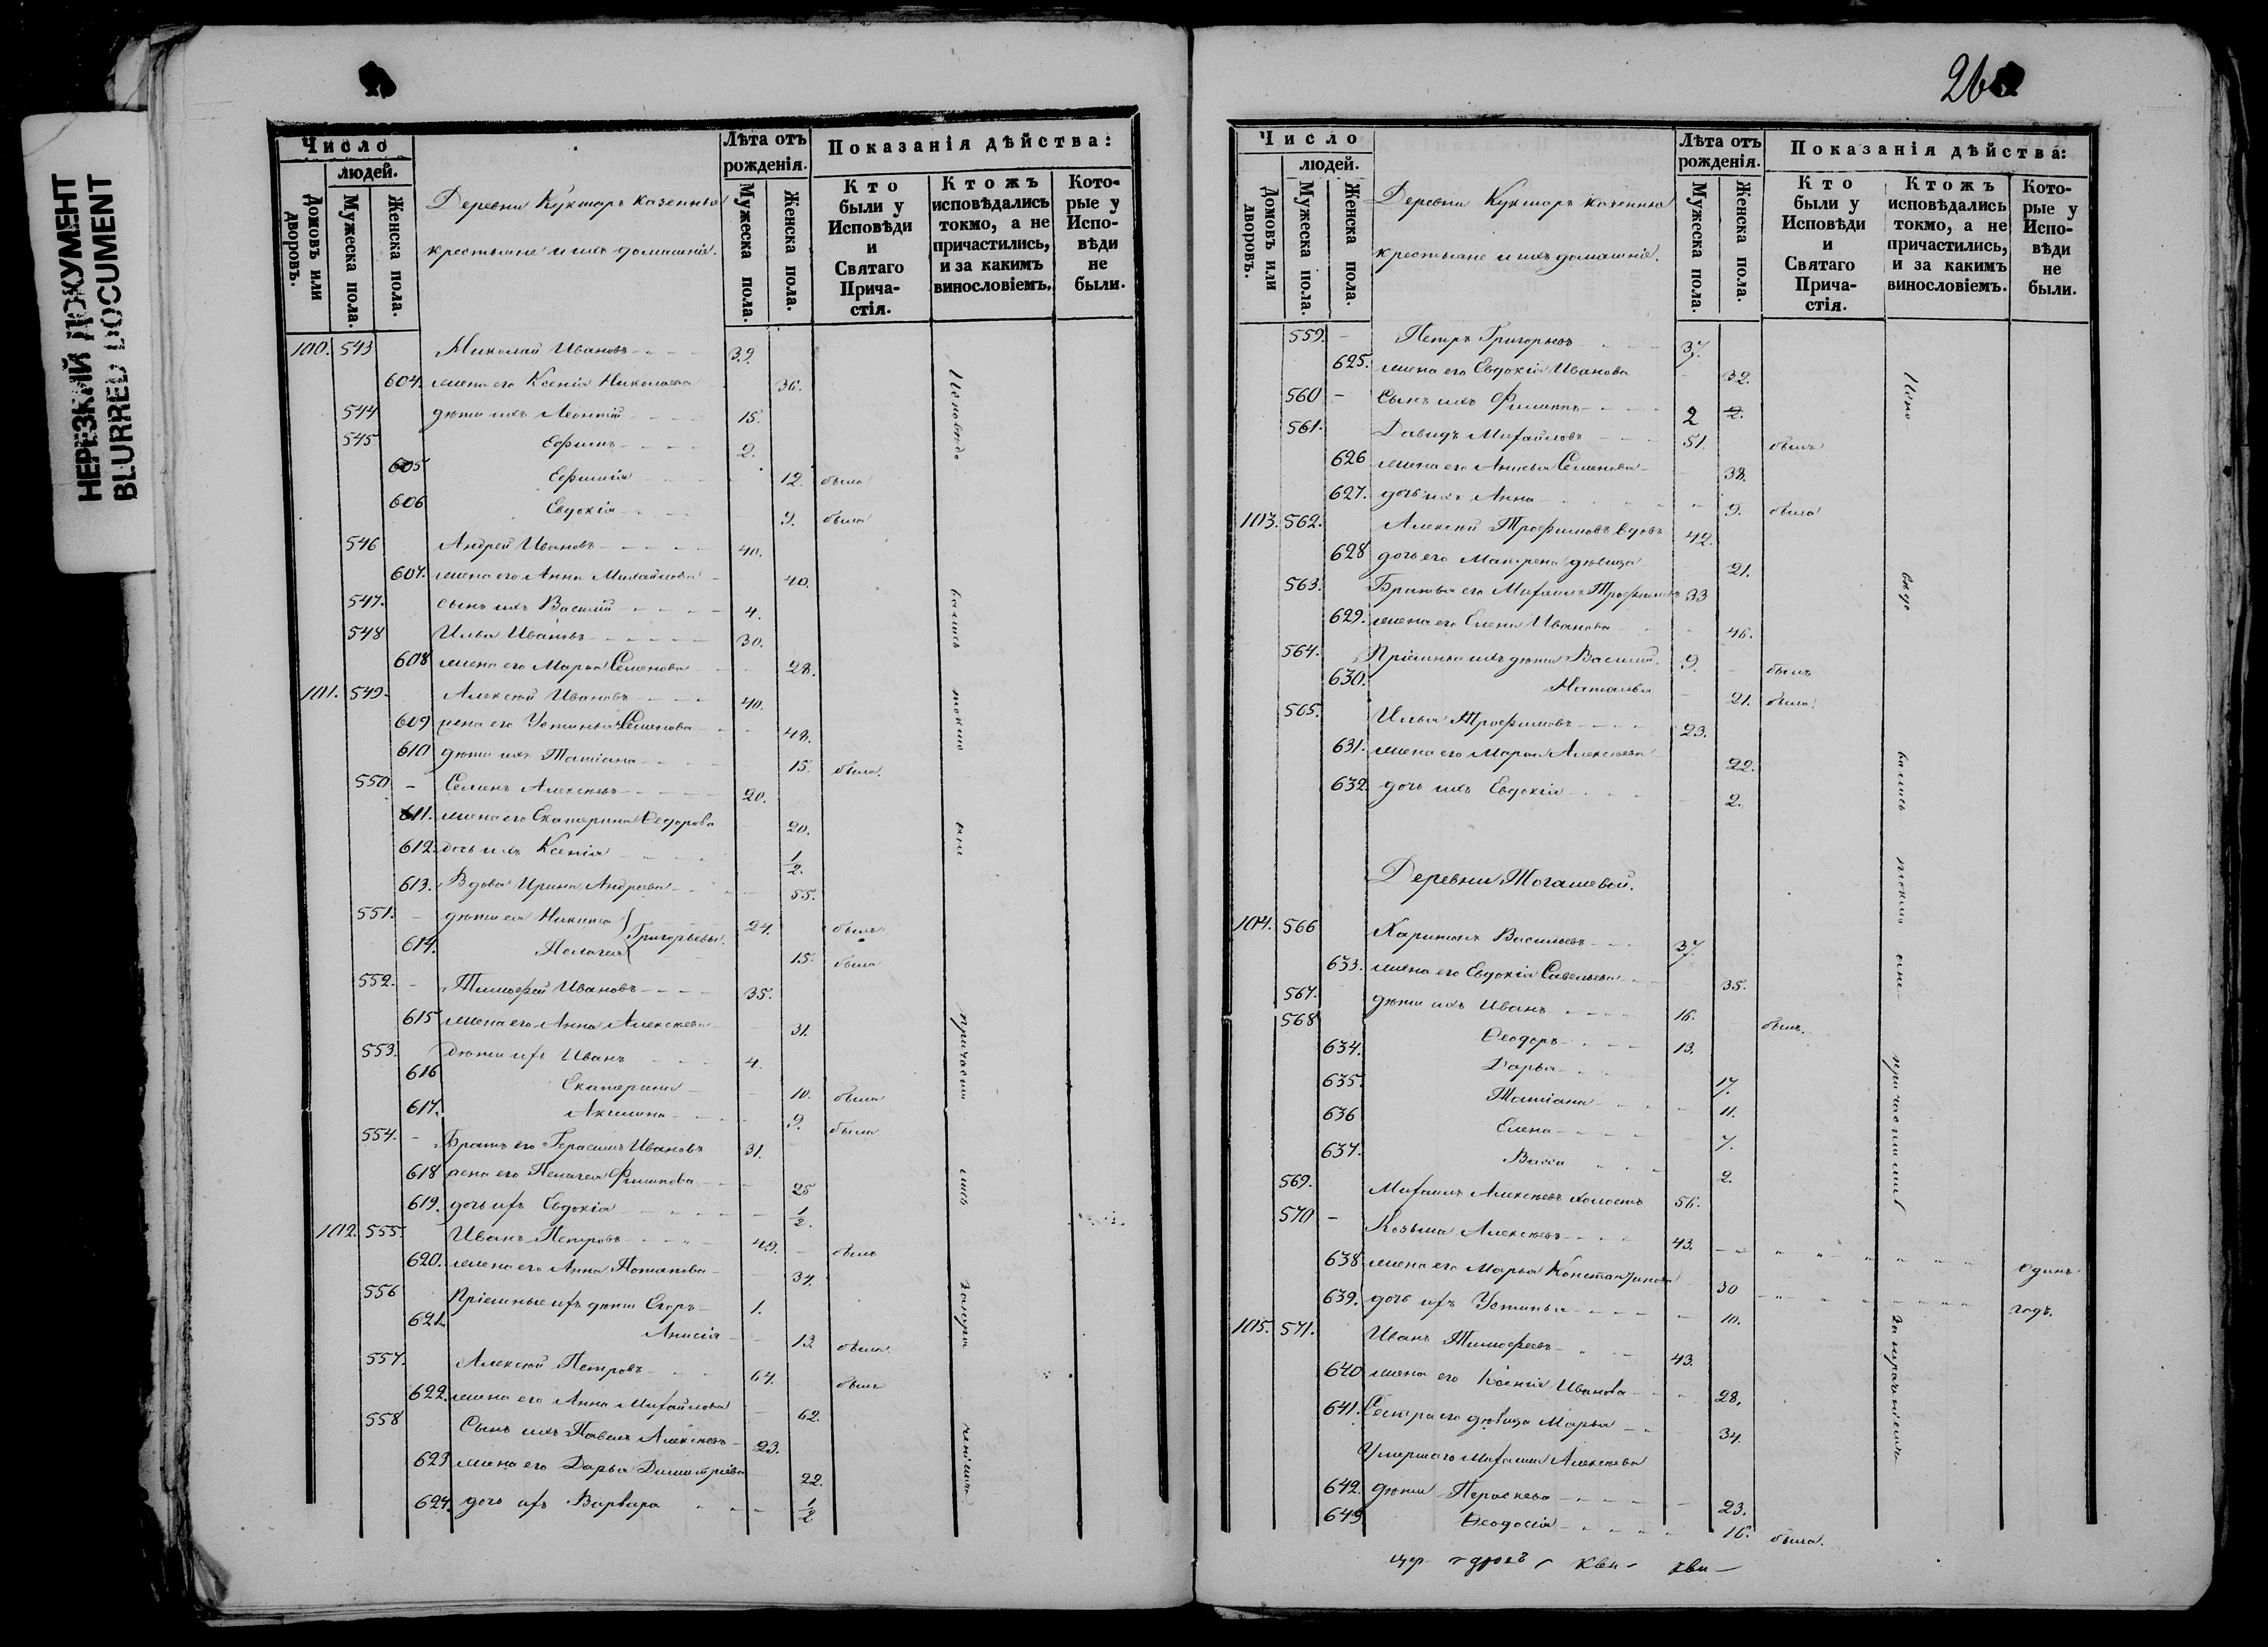 НЕРЕЗКИЙ ДОКУМЕНТ
BLURRED DOCUMENT
Число
людей.
Домовъ или дворовъ.
Мужеска пола.
Женска пола.
Деревни Кукшаръ казенные
крестьяне и ихъ домашніе.
Лѣта отъ рожденія.
Мужеска пола.
Женска пола.
Показанія дѣйства:
Кто были у Исповѣди и Святаго Прича-стія.
Ктожъ исповѣдались токмо, а не причастились, и за какимъ винословіемъ.
Кото-рые у Испо-вѣди не были.
100. 543 Николай Ивановъ 39.
604. жена его Ксенія Николаева 36.
544 дѣти ихъ Леонтій 15.
545 Ефимъ 2.
605 Ефимія 12. была
606 Евдокія 9. была
546 Андрей Ивановъ 40.
607. жена его Анна Михайлова 40.
547. сынъ ихъ Василій 4.
548 Илья Ивановъ 30.
608 жена его Марья Семенова 28.
101. 549. Алексѣй Ивановъ 40.
609 жена его Устинья Семенова 48.
610 дѣти ихъ Татіана 15. была.
550 Семенъ Алексѣевъ 20.
611. жена его Екатерина Ѳедорова 20.
612. дочь ихъ Ксенія 1/2.
613. Вдова Ирина Андреева 55.
551. дѣти ея Никита Григорьевы. 24. былъ
614. Пелагея 15. была
552. Тимофей Ивановъ 35.
615 жена его Анна Алексѣева 31.
553. дѣти ихъ Иванъ 4.
616 Екатерина 10. была
617. Акилина 9. была
554. Братъ его Герасимъ Ивановъ 31.
618 жена его Пелагея Филипова 25
619. дочь ихъ Евдокія 1/2.
102. 555. Иванъ Петровъ 49. былъ
620. жена его Анна Потапова 34.
556 Пріемные ихъ дѣти Егоръ 1.
621. Анисія 13. была.
557. Алексѣй Петровъ 64. былъ
622. жена его Анна Михайлова 62.
558 Сынъ ихъ Павелъ Алексѣевъ 23.
623 жена его Дарья Димитріева 22.
624. дочь ихъ Варвара 1/2
Исповѣдо
вались
токмо
а не
причасти
лись
260
Число
людей.
Домовъ или дворовъ.
Мужеска пола.
Женска пола.
Деревни Кукшаръ казенные
крестьяне и ихъ домашніе.
Лѣта отъ рожденія.
Мужеска пола.
Женска пола.
Показанія дѣйства:
Кто были у Исповѣди и Святаго Прича-стія.
Ктожъ исповѣдались токмо, а не причастились, и за какимъ винословіемъ.
Кото-рые у Испо-вѣди не были.
559. Петръ Григорьевъ 37.
625. жена его Евдокія Иванова 32.
560 Сынъ ихъ Филиппъ 2
561. Давидъ Михайловъ 51. былъ
626 жена его Анисья Семенова 38.
627. дочь ихъ Анна 9. была
103. 562. Алексѣй Трофимовъ вдовъ 42.
628 дочь его Макрена дѣвица 21.
563. Братья его Михаилъ Трофимовъ 33
629. жена его Елена Иванова 46.
564. Пріемные ихъ дѣти Василій. 9. былъ
630. Наталья 21. была.
565. Илья Трофимовъ 23.
631. жена его Марья Алексѣева 22.
632. дочь ихъ Евдокія 2.
Деревни Тогашевой.
104. 566 Харитонъ Васильевъ 37.
633. жена его Евдокія Савельева 35.
567. дѣти ихъ Иванъ 16. былъ.
568 Ѳеодоръ 13.
634. Дарья 17.
635. Татіана 11.
636 Елена 7.
637. Васса 2.
569. Михаилъ Алексѣевъ холостъ 56.
570 Козьма Алексѣевъ 43. одинъ
638. жена его Марья Константинова 30 годъ.
639. дочь ихъ Устинья 10.
105. 571. Иванъ Тимофеевъ 43.
640 жена его Ксенія Иванова 28.
641. Сестра его дѣвица Марья 34.
Умершаго Михаила Алексѣева
642. дѣти Параскева 23.
643. Ѳеодосія 16. была.
Испо
вѣдо
вались
токмо
а не
причастились
за нераченіемъ